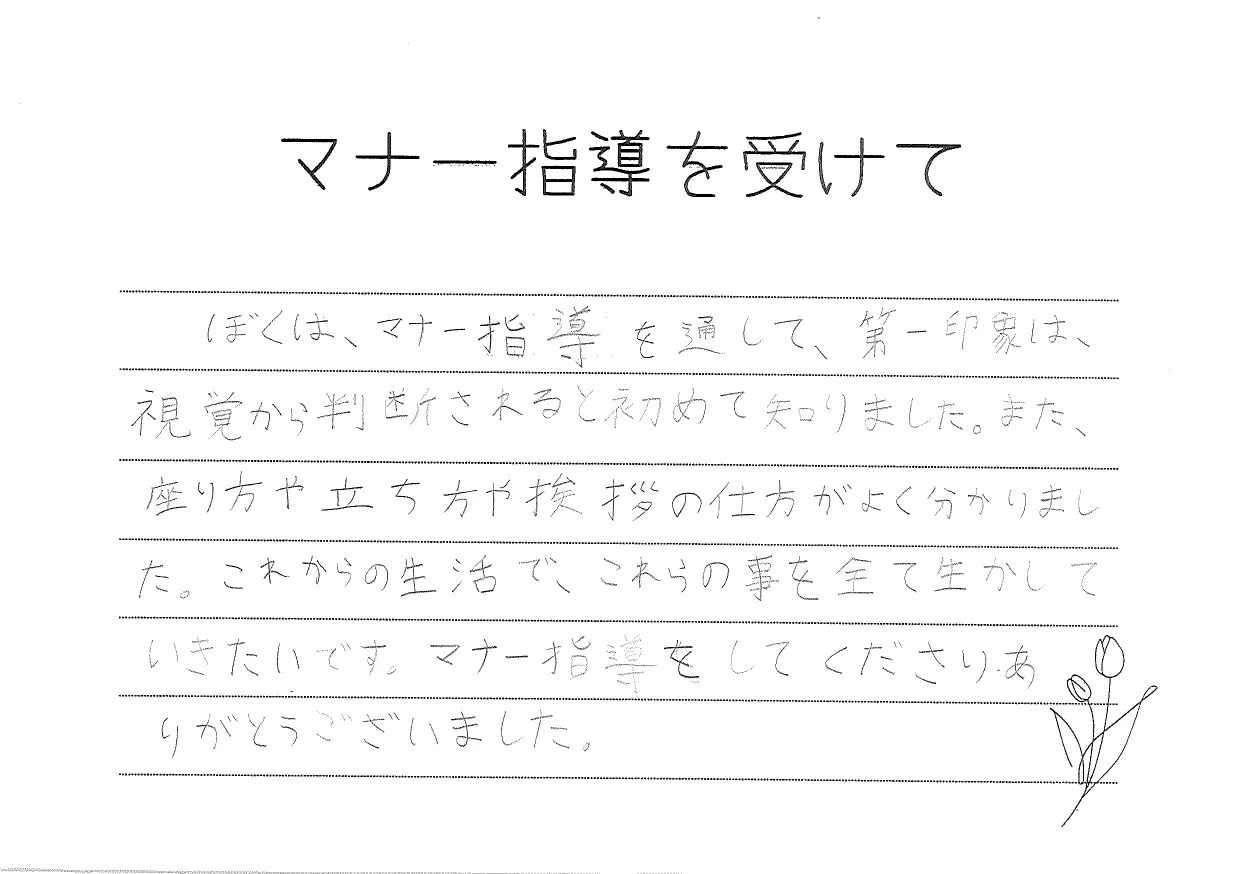 マナー指導を受けて
ぼくは、マナー指導を通して、第一印象は、
視覚から判断されると初めて知りました。また、
座り方や立ち方や挨拶の仕方がよく分かりまし
た。これからの生活で、これらの事を全て生かして
いきたいです。マナー指導をしてくださりあ
りがとうございました。